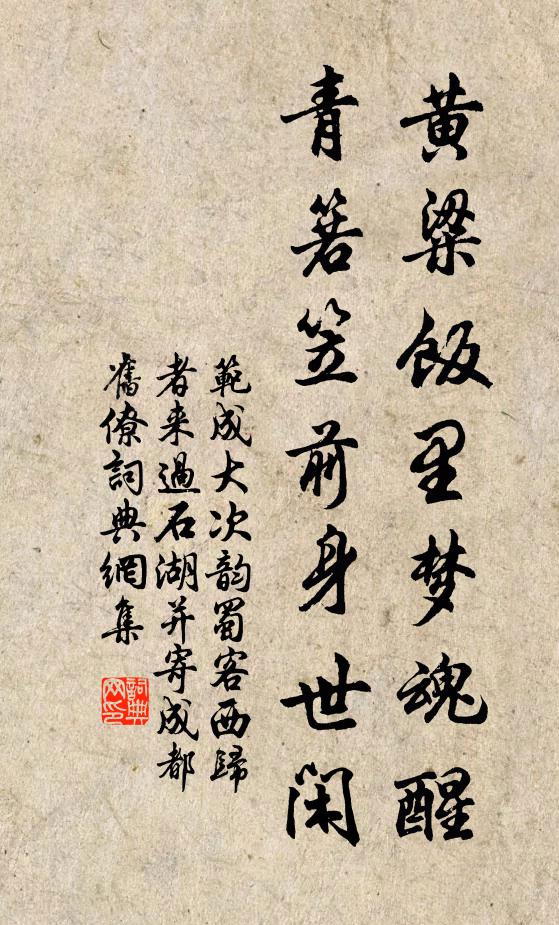 黄粱飯里梦魂醒
青箬笠前身世闲
範成大次韵蜀客西歸
者来過石湖并寄成都
舊僚詞典網集
詞典
网印